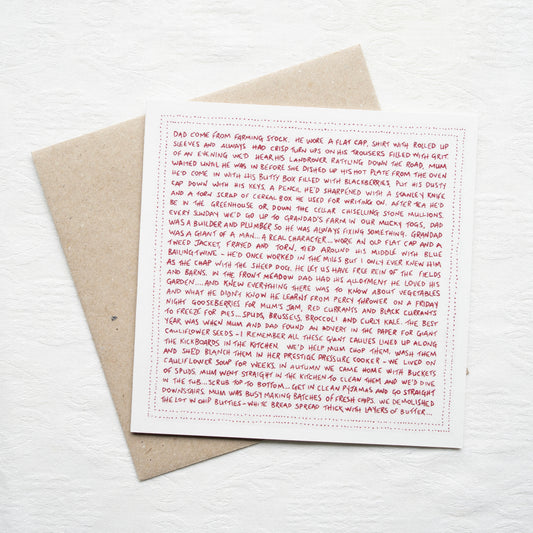 DAD COME FROM FARMING STOCK. HE WORE A FLAT CAP, SHIRT WITH ROLLED UP
SLEEVES AND ALWAYS HAD CRISP TURN UPS ON HIS TROUSERS FILLED WITH GRIT
OF AN EVENING WE'D HEAR HIS LANDROVER RATTLING DOWN THE ROAD, MUM
WAITED UNTIL HE WAS IN BEFORE SHE DISHED UP HIS HOT PLATE FROM THE OVEN
HE'D COME IN WITH HIS BUTTY BOX FILLED WITH BLACKBERRIES, PUT HIS DUSTY
CAP DOWN WITH HIS KEYS, A PENCIL HE'D SHARPENED WITH A STANLEY KNIFE
AND A TORN SCRAP OF CEREAL BOX HE USED FOR WRITING ON. AFTER TEA HE'D
BE IN THE GREENHOUSE OR DOWN THE CELLAR CHISELLING STONE MULLIONS.
EVERY SUNDAY WE'D GO UP TO GRANDAD'S FARM IN OUR MUCKY TOGS, DAD
WAS A BUILDER AND PLUMBER SO HE WAS ALWAYS FIXING SOMETHING. GRANDAD
WAS A GIANT OF A MAN... A REAL CHARACTER... WORE AN OLD FLAT CAP AND A
TWEED JACKET, FRAYED AND TORN, TIED AROUND HIS MIDDLE WITH BLUE
BAILING TWINE - HE'D ONCE WORKED IN THE MILLS BUT I ONLY EVER KNEW HIM
AS THE CHAP WITH THE SHEEP DOG. HE LET US HAVE FREE REIN OF THE FIELDS
AND BARNS. IN THE FRONT MEADOW DAD HAD HIS ALLOTMENT HE LOVED HIS
GARDEN.... AND KNEW EVERYTHING THERE WAS TO KNOW ABOUT VEGETABLES
AND WHAT HE DIDN'T KNOW HE LEARNT FROM PERCY THROWER ON A FRIDAY
NIGHT GOOSEBERRIES FOR MUM'S JAM, RED CURRANTS AND BLACK CURRANTS
TO FREEZE FOR PIES.... SPUDS, BRUSSELS, BROCCOLI AND CURLY KALE. THE BEST
YEAR WAS WHEN MUM AND DAD FOUND AN ADVERT IN THE PAPER FOR GIANT
CAULIFLOWER SEEDS - I REMEMBER ALL THESE GIANT CAULIES LINED UP ALONG
THE KICKBOARDS IN THE KITCHEN. WE'D HELP MUM CHOP THEM, WASH THEM
AND SHE'D BLANCH THEM IN HER PRESTIGE PRESSURE COOKER - WE LIVED ON
CAULIFLOWER SOUP FOR WEEKS. IN AUTUMN WE CAME HOME WITH BUCKETS
OF SPUDS. MUM WENT STRAIGHT IN THE KITCHEN TO CLEAN THEM AND WE'D DIVE
IN THE TUB... SCRUB TOP TO BOTTOM... GET IN CLEAN PYJAMAS AND GO STRAIGHT
DOWNSTAIRS. MUM WAS BUSY MAKING BATCHES OF FRESH CHIPS. WE DEMOLISHED
THE LOT IN CHIP BUTTIES - WHITE BREAD SPREAD THICK WITH LAYERS OF BUTTER...